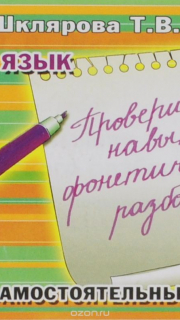 Шклярова Т.В.
ЯЗЫК
Провери
навы
фонетич
разбо
АМОСТОЯТЕЛЬНЫ
ozon.ru